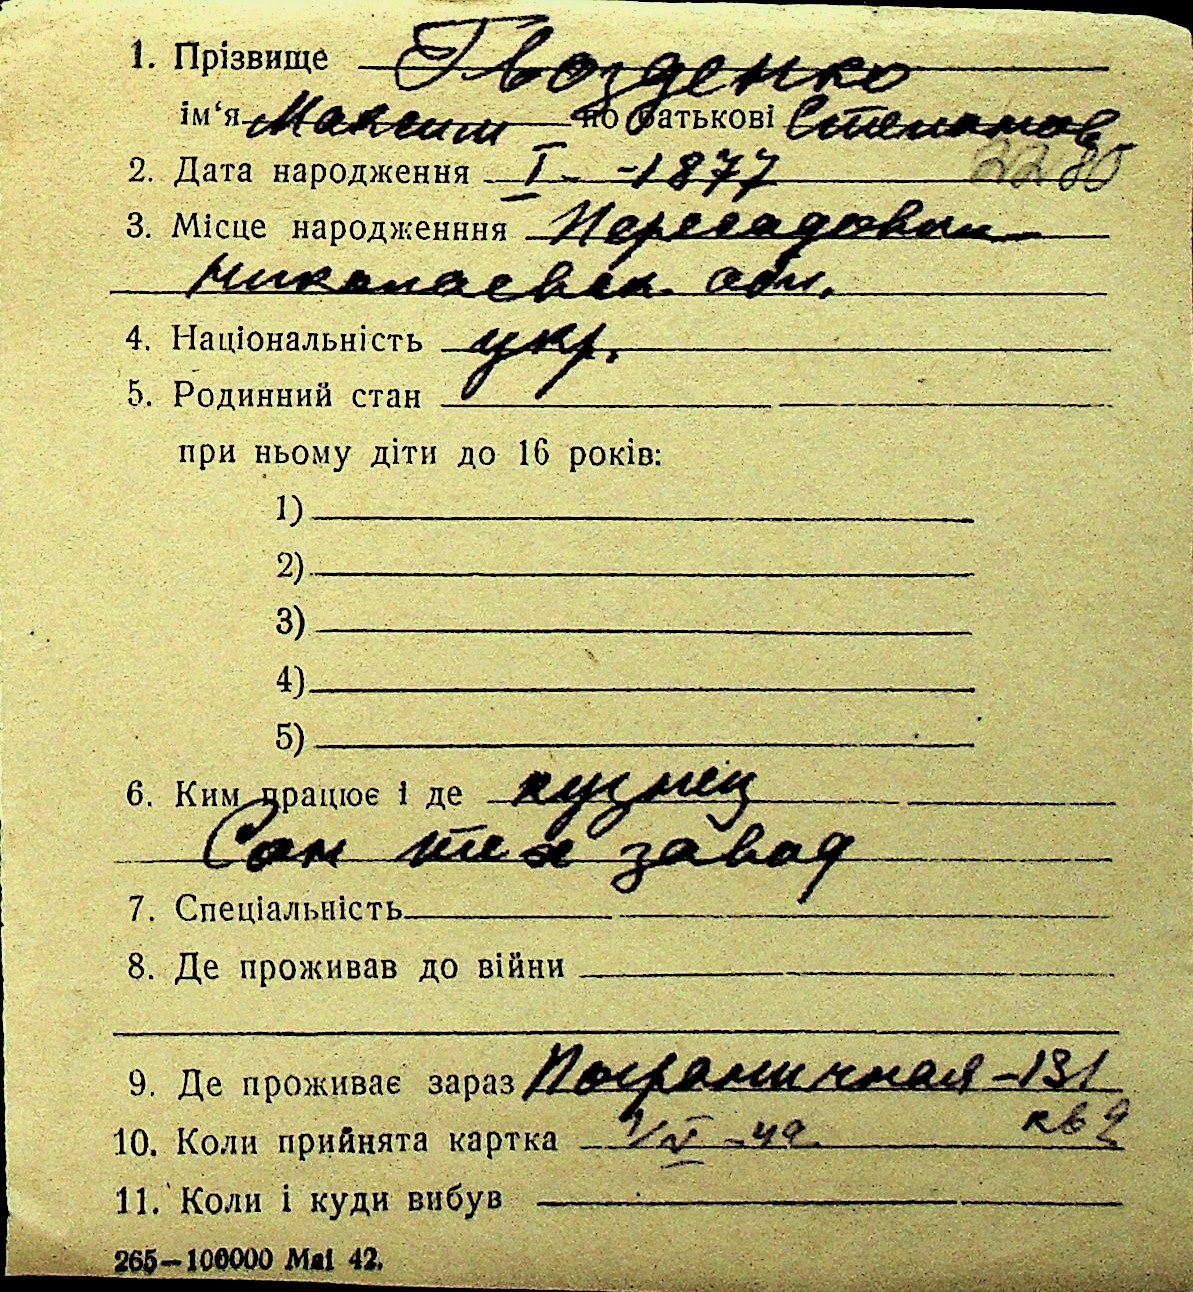 1. Прізвище Гвозденко
ім‘я Максим по батькові Степанов
2280
2. Дата народження I - 1877
3. Місце народженння Пересадовки
Николаевск. обл.
4. Національність укр.
5. Родинний стан
при ньому діти до 16 років:
1)
2)
3)
4)
5)
6. Ким працює і де кузнец
Сан тех завод
7. Спеціальність
8. Де проживав до війни
9. Де проживає зараз Пограничная - 131
кв 9
10. Коли прийнята картка
11. Коли і куди вибув
265—100000 Mai 42.